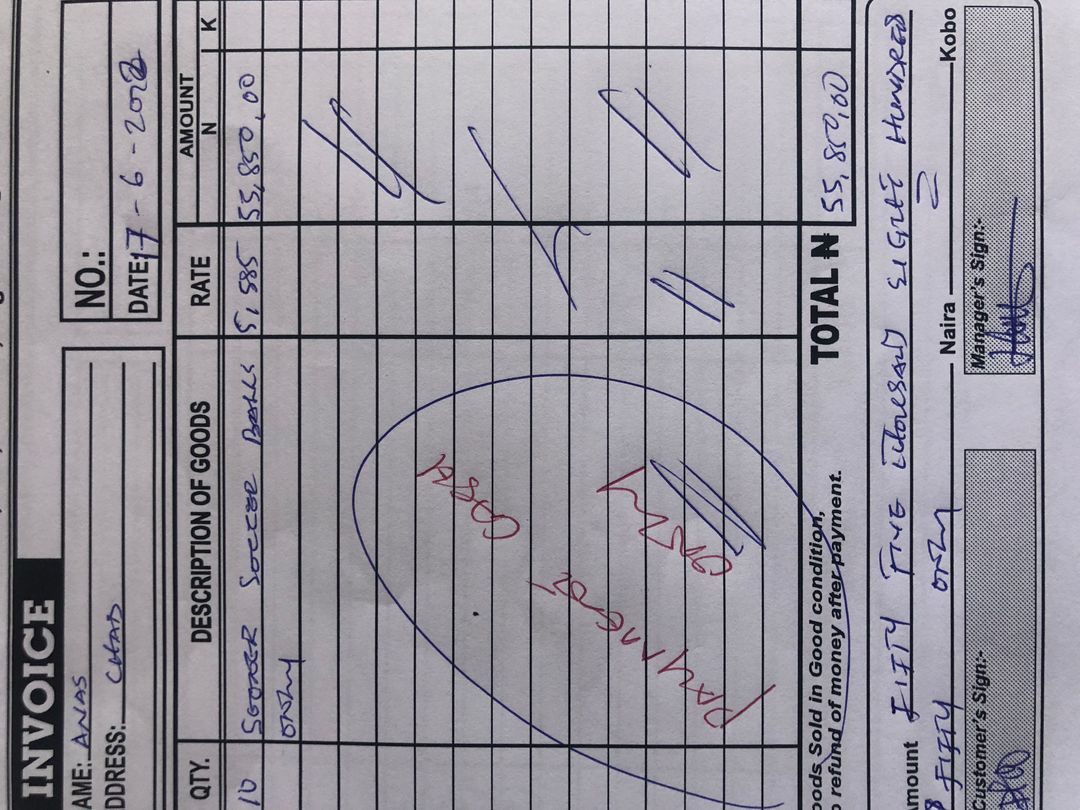 INVOICE
NO.:
AME: ANAS
DDRESS: CHAD
DATE: 17-6-2022
QTY. DESCRIPTION OF GOODS RATE AMOUNT
N K
10 SOCCER BALLS 5,585 55,850,00
ONLY
PAYMENT CASH
ONLY
oods Sold in Good condition,
o refund of money after payment.
TOTAL N 55,850,00
mount FIFTY FIVE THOUSAND EIGHT HUNDRED
& FIFTY ONLY Naira Kobo
ustomer's Sign:- Manager's Sign:-